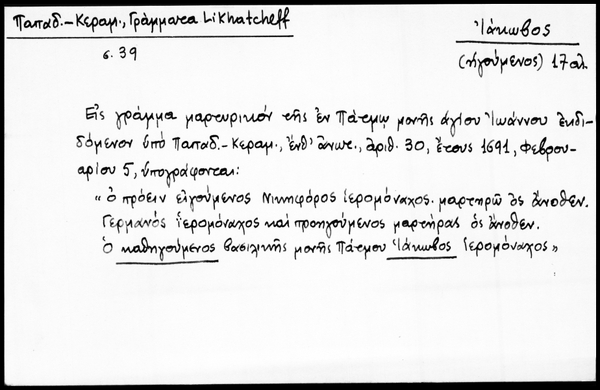 Παπαδ.-Κεραμ., Γράμματα Likhatcheff
σ. 39
Ἰάκωβος
(ἡγούμενος) 17 αἰ.
Εἰς γράμμα μαρτυρικόν τῆς ἐν Πάτμῳ μονῆς ἁγίου Ἰωάννου ἐκδι-
δόμενον ὑπό Παπαδ.-Κεραμ., ἔνθ' ἄνωτ., ἀριθ. 30, ἔτους 1691, Φεβρου-
αρίου 5, ὑπογράφονται:
"ὁ πρόειν εἰγούμενος Νικηφόρος ἱερομόναχος. μαρτηρῶ ὁς ἄνοθεν.
Γερμανός ἱερομόναχος καί προηγούμενος μαρτήρας ὁς ἄνοθεν.
Ὁ καθηγούμενος βασιλικῆς μονῆς Πάτμου Ἰάκωβος ἱερομόναχος"